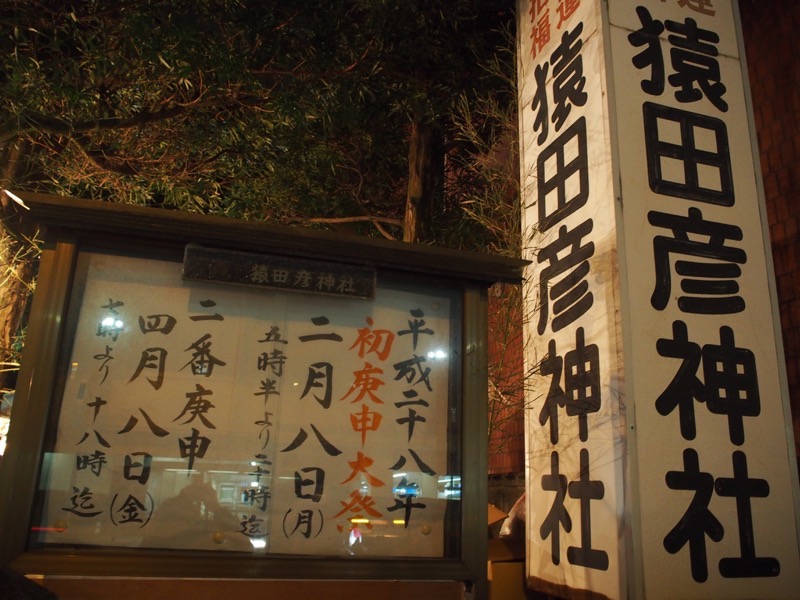 猿田彦神社
平成二十八年
初庚申大祭
二月八日(月)
五時半より二十時迄
二番庚申
四月八日(金)
七時より十八時迄
招福
開運
猿田彦神社
猿田彦神社